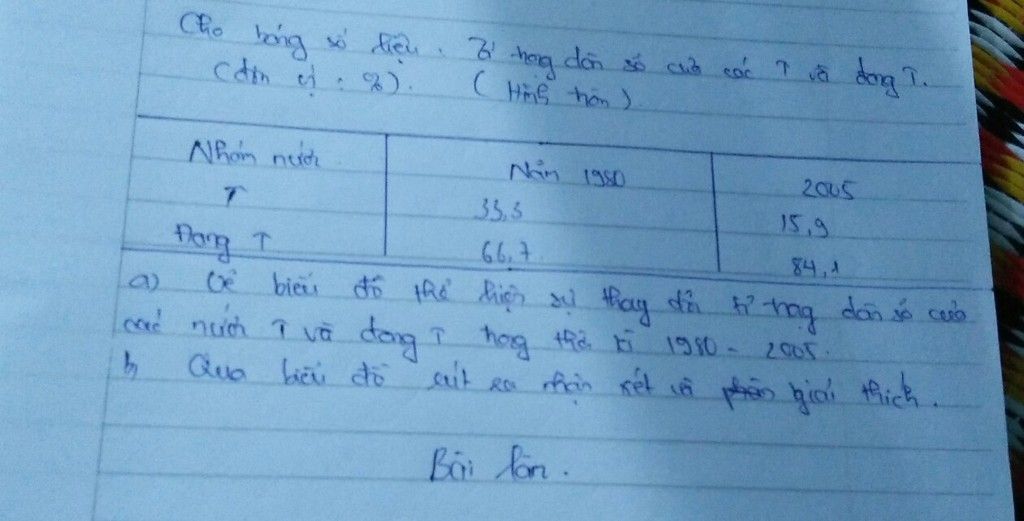 Cho bảng số liệu. Tỉ trọng dân số của các T và đang T.
(đơn vị : %). (Hình tròn)
Nhóm nước Năm 1980 2005
T 33,3 15,9
Đang T 66,7 84,1
a) Vẽ biểu đồ thể hiện sự thay đổi tỉ trọng dân số của
các nước T và đang T trong thời kì 1980 - 2005.
b, Qua biểu đồ rút ra nhận xét và giải thích.
Bài làm.